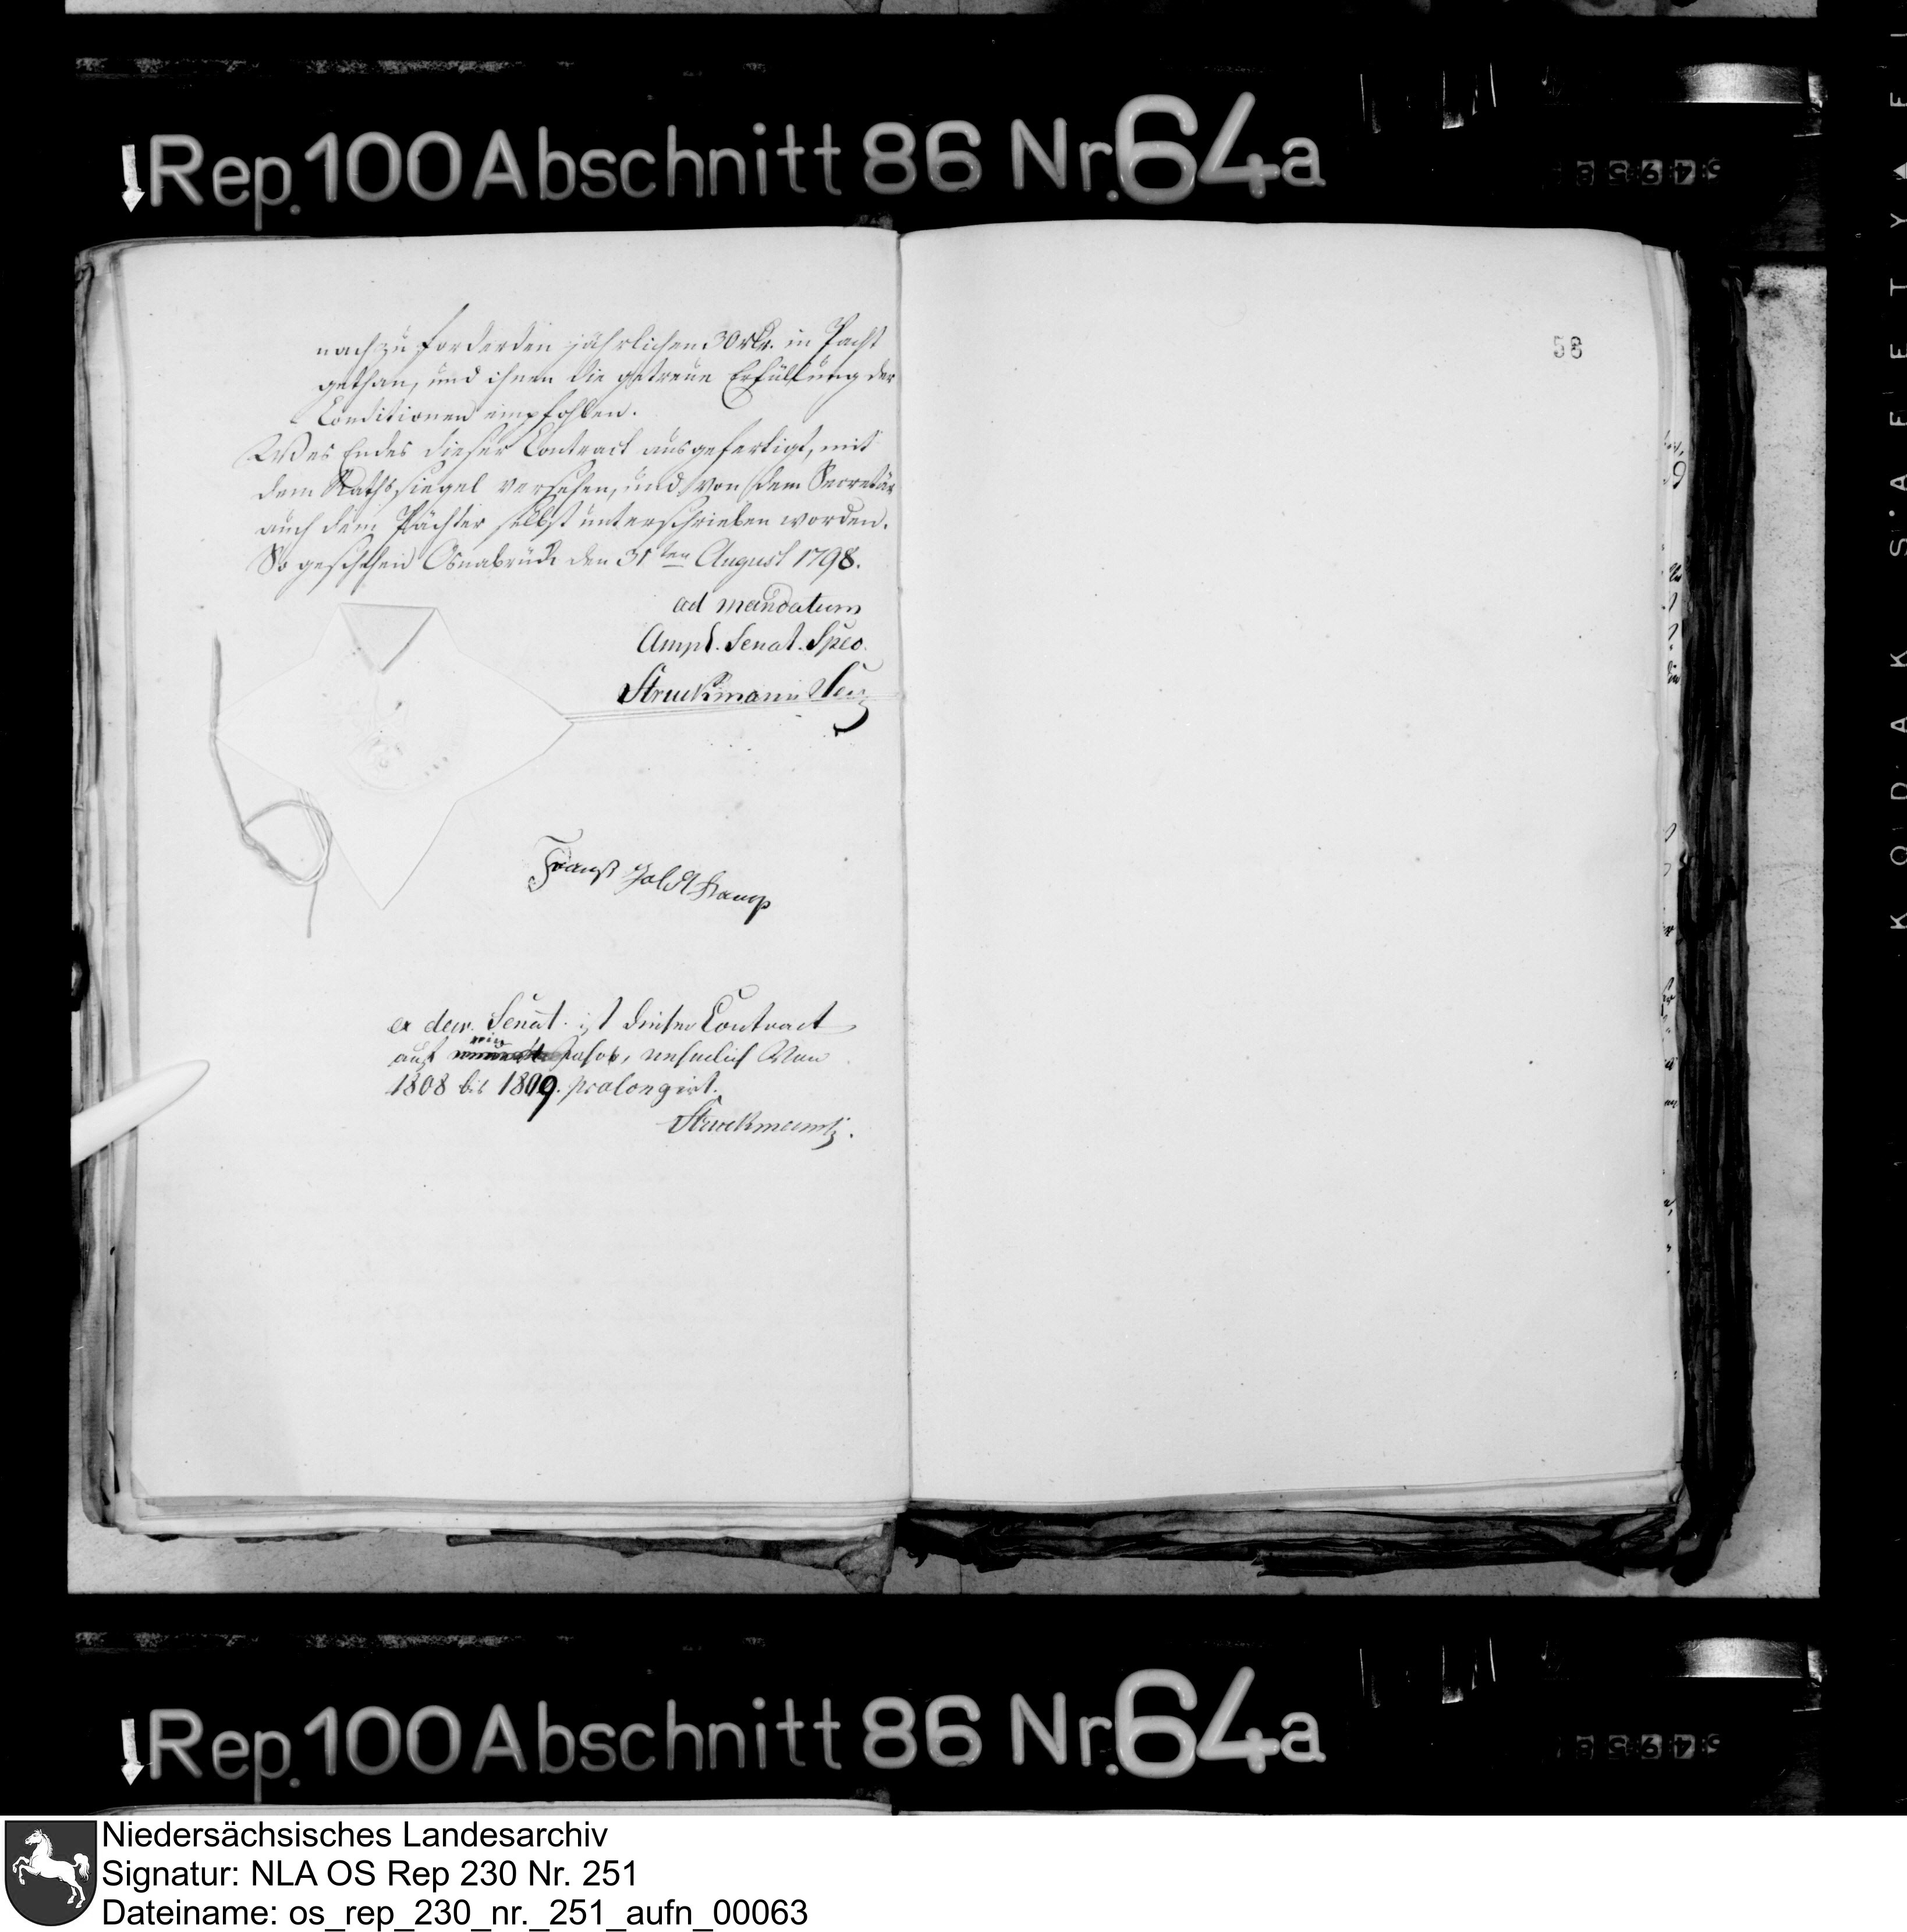 Rep. 100 Abschnitt 86 Nr. 64a
nachzu fordernden jährlichen 30 rtlr. in Pacht
gethan, und ihnen die getreue Erfüllung der
Conditionen empfohlen.
Wes Endes dieser Contract ausgefertigt, mit
dem Rathssiegel versehen, und von dem Secretär
auch dem Pächter selbst unterschrieben worden.
So geschehen Osnabrück den 31ten August 1798.
ad mandatum
Ampl. Senat. Spec.
Struckmann Secr
ex decr. Senat. ist dieser Contract
auf ein Jahr, nehmlich von
1808 bis 1809. prolongirt.
Struckmann
58
KODAK SAFETY
Rep. 100 Abschnitt 86 Nr. 64a
Niedersächsisches Landesarchiv
Signatur: NLA OS Rep 230 Nr. 251
Dateiname: os_rep_230_nr._251_aufn_00063